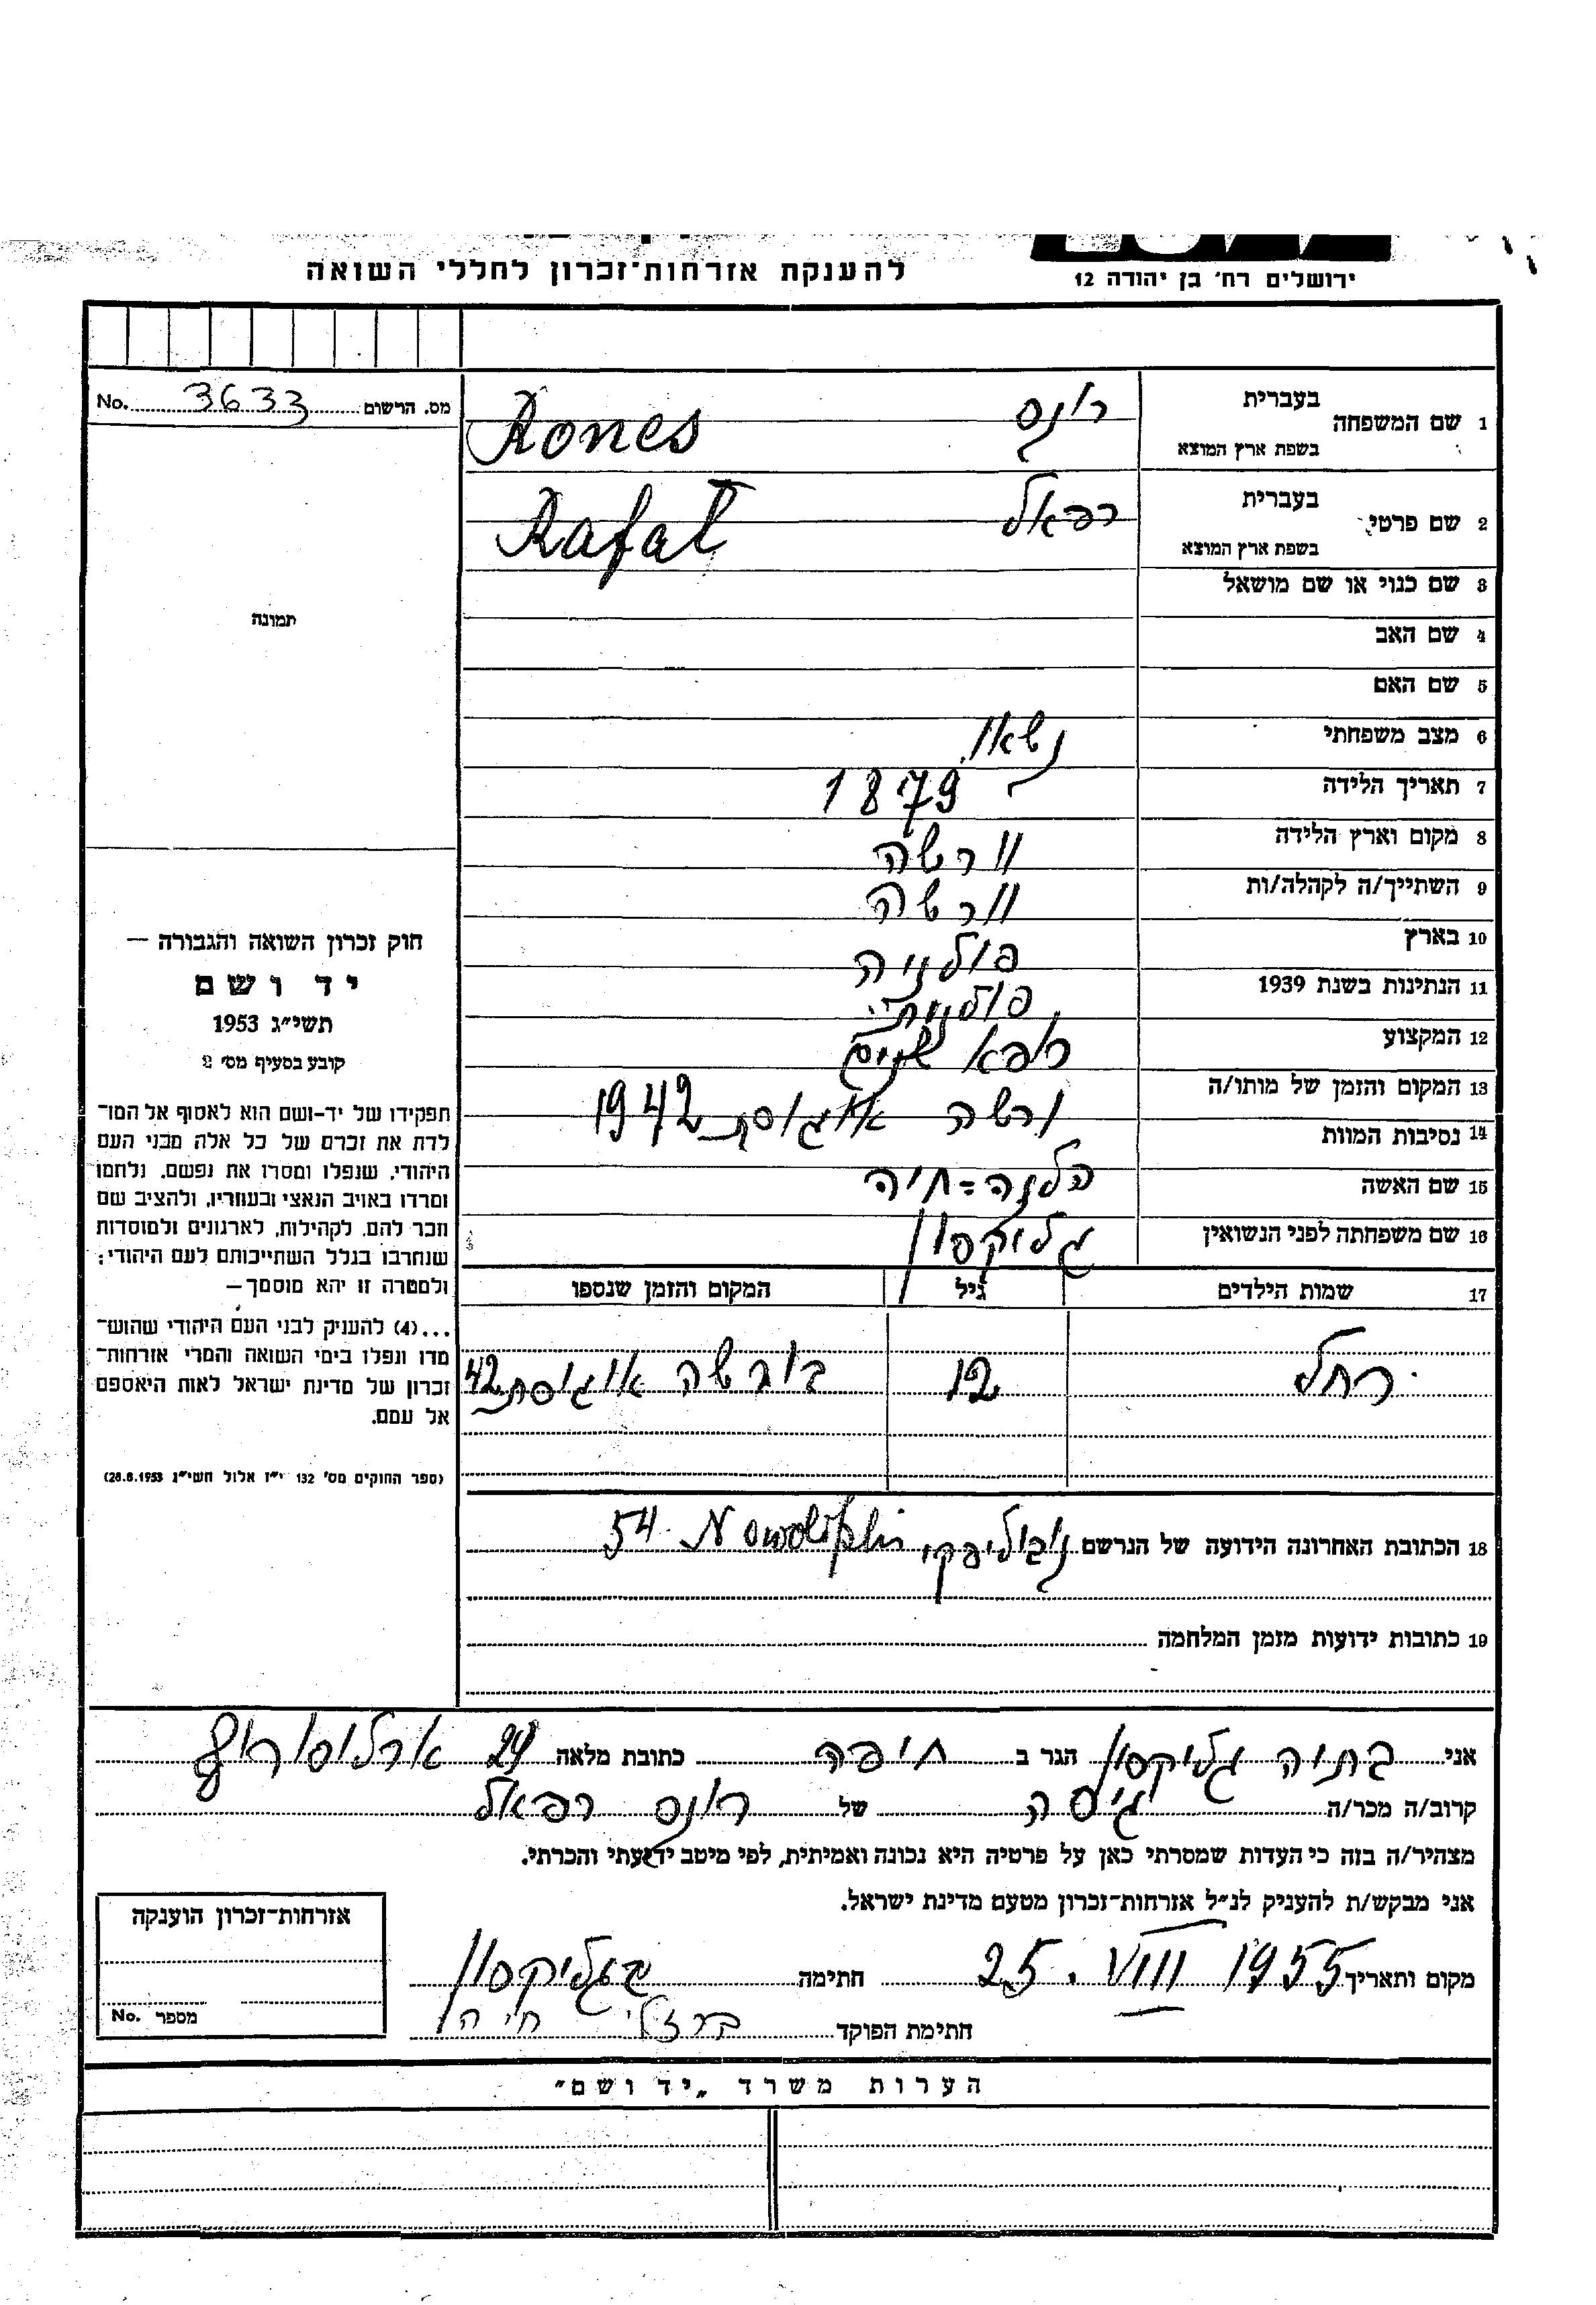 להענקת אזרחות־זכרון לחללי השואה
ירושלים רח׳ בן יהודה 12
מס. הרשום 3633 No.
1 שם המשפחה בעברית רונס
בשפת ארץ המוצא Rones
2 שם פרטי בעברית רפאל
בשפת ארץ המוצא Rafał
3 שם כנוי או שם מושאל
4 שם האב
5 שם האם
6 מצב משפחתי נשוי
7 תאריך הלידה 1879
8 מקום וארץ הלידה וורשה
9 השתייך/ה לקהלה/ות וורשה
10 בארץ פולניה
11 הנתינות בשנת 1939 פולנית
12 המקצוע רופא שנים
13 המקום והזמן של מותו/ה
14 נסיבות המוות
ורשה אוגוסט 1942
15 שם האשה הלנה=חיה
16 שם משפחתה לפני הנשואין גליקסון
תמונה
חוק זכרון השואה והגבורה —
יד ושם
תשי״ג 1953
קובע בסעיף מס׳ 2
תפקידו של יד-ושם הוא לאסוף אל המו־
לדת את זכרם של כל אלה מבני העם
היהודי, שנפלו ומסרו את נפשם, נלחמו
ומרדו באויב הנאצי ובעוזריו, ולהציב שם
וזכר להם, לקהילות, לארגונים ולמוסדות
שנחרבו בגלל השתייכותם לעם היהודי;
ולמטרה זו יהא מוסמך—
...(4) להעניק לבני העם היהודי שהוש־
מדו ונפלו בימי השואה והמרי אזרחות־
זכרון של מדינת ישראל לאות היאספם
אל עמם.
(ספר החוקים מס׳ 132 י״ז אלול תשי״ג 28.8.1953)
17 שמות הילדים גיל המקום והזמן שנספו
רחל 12 בורשה אוגוסט 42
18 הכתובת האחרונה הידועה של הנרשם נובוליפקי Nowolipki 54
19 כתובות ידועות מזמן המלחמה
אני בתיה גליקסון הגר ב חיפה כתובת מלאה ארלוסורוף 29
קרוב/ה מכר/ה גיסה של רונס רפאל
מצהיר/ה בזה כי העדות שמסרתי כאן על פרטיה היא נכונה ואמיתית, לפי מיטב ידיעתי והכרתי.
אני מבקש/ת להעניק לנ״ל אזרחות־זכרון מטעם מדינת ישראל.
מקום ותאריך 25. VIII 1955 חתימה ב גליקסון
חתימת הפוקד ברזלי חיה
אזרחות־זכרון הוענקה
מספר No.
הערות משרד „יד ושם״